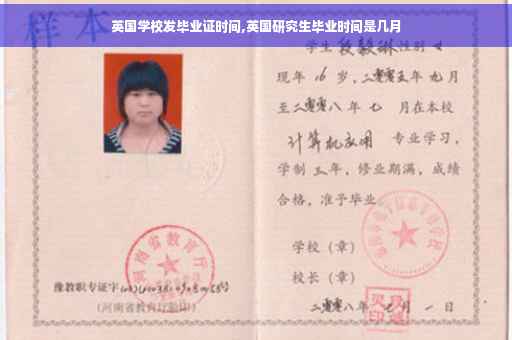 英国学校发毕业证时间,英国研究生毕业时间是几月
样本
学生段毅琳性别女
现年16岁,二零零五年九月
至二零零八年七月在本校
计算机应用 专业学习,
学制三年,修业期满,成绩
合格,准予毕业
学校(章)
校长(章)
二零零八年 月一日
河南省教育厅
豫教职专证字
(河南省教育厅验印)